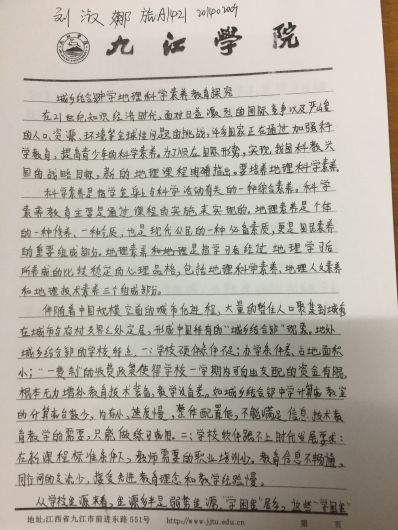 刘淑娜 旅A1421 201402009
九江学院
城乡结合部中学地理科学素养教育探究
在21世纪知识经济时代,面对日益激烈的国际竞争以及严峻
的人口、资源、环境等全球性问题的挑战,许多国家正在通过加强科
学教育,提高青少年的科学素养。为了顺应国际形势,实现我国科教兴
国的战略目标,新的地理课程明确指出:要培养地理科学素养。
科学素养是指学生参与科学活动有关的一种综合素养。科学
素养教育主要是通过课程的实施来实现的。地理素养是个体
的一种修养、一种品质,也是现代公民的一种必备素质,更是国民素养
的重要组成部分。地理素养和地理是指学习者经过地理学习后
所养成的比较稳定的心理品格,包括地理科学素养、地理人文素养
和地理技术素养三个组成部分。
伴随着中国规模空前的城市化进程,大量的暂住人口聚集到城市
在城市与农村交界之处定居,形成中国特有的“城乡结合部”现象。地处
城乡结合部的学校特点,一:学校硬件条件不足;办学条件差、占地面积
小;“一费制”的收费政策使得学校一学期为可自由支配的资金有限,
根本无力增补教育技术装备,教学设备差。如城乡结合部中学计算机教室
的计算机台数少,内存小,速度慢,整体配置低,不能满足信息技术教
育教学的需要,只能做练习使用。二:学校软件跟不上时代发展要求:
在新课程标准条件下,教师需要的职业培训少。教育信息不畅通,
同行间的交流少,接受先进教育理念和教学经验慢。
从学校生源来看,生源多半是弱势生源,“学困生”居多,这些“学困生”
地址:江西省九江市前进东路551号 http://www.jju.edu.cn 第 页